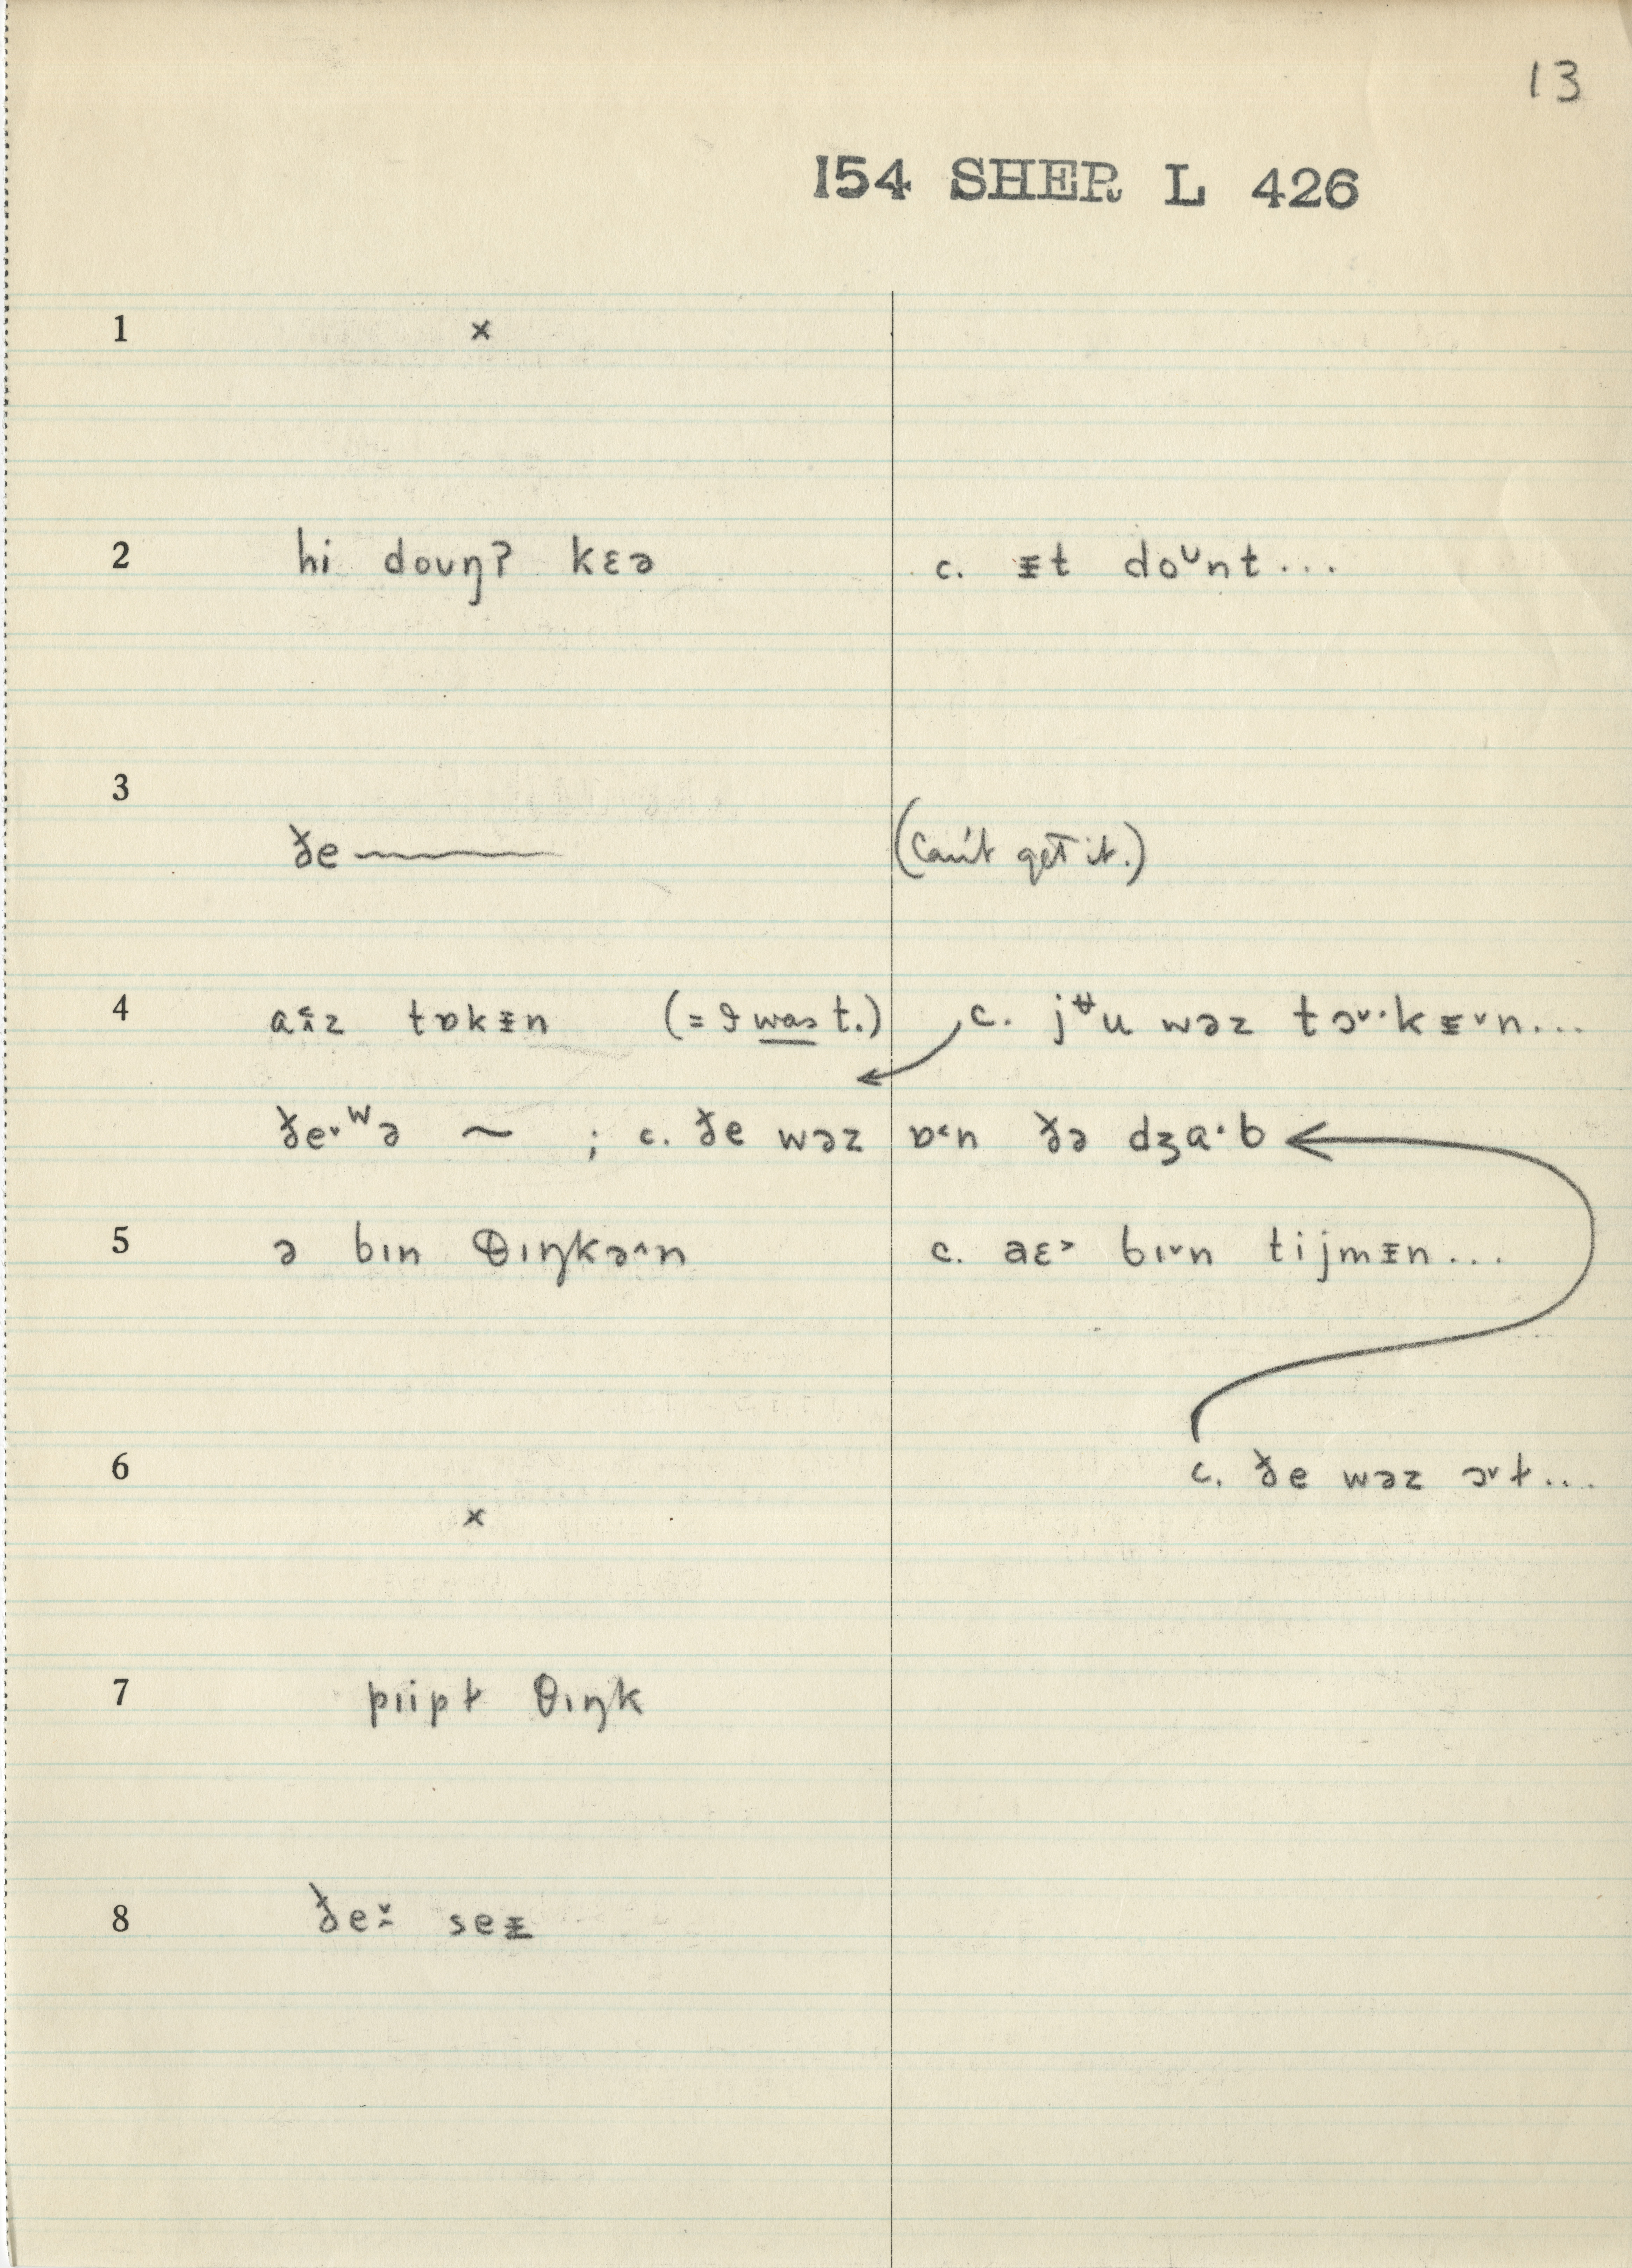 13
154 SHER L 426
1 x
2 hi doʊŋʔ kɛə c. ᵻt doᴜnt...
3 ðe—— (Can't get it.)
4 aᵻ̂z tɒkᵻn (= I was t.) c. jᶶu wəz tɔ˅·kᵻ˅n...
ðe·ʷə ~ ; c. ðe wəz ɒ˂n ðə dʒa·b
5 ə bɪn θɪŋkə˄n c. aɛ˃ bɪ˅n tijmᵻn...
6 c. ðe wəz ɔ˅ɫ...
x
7 pɪipɫ θɪŋk
8 ðeɪ̆ seᵻ